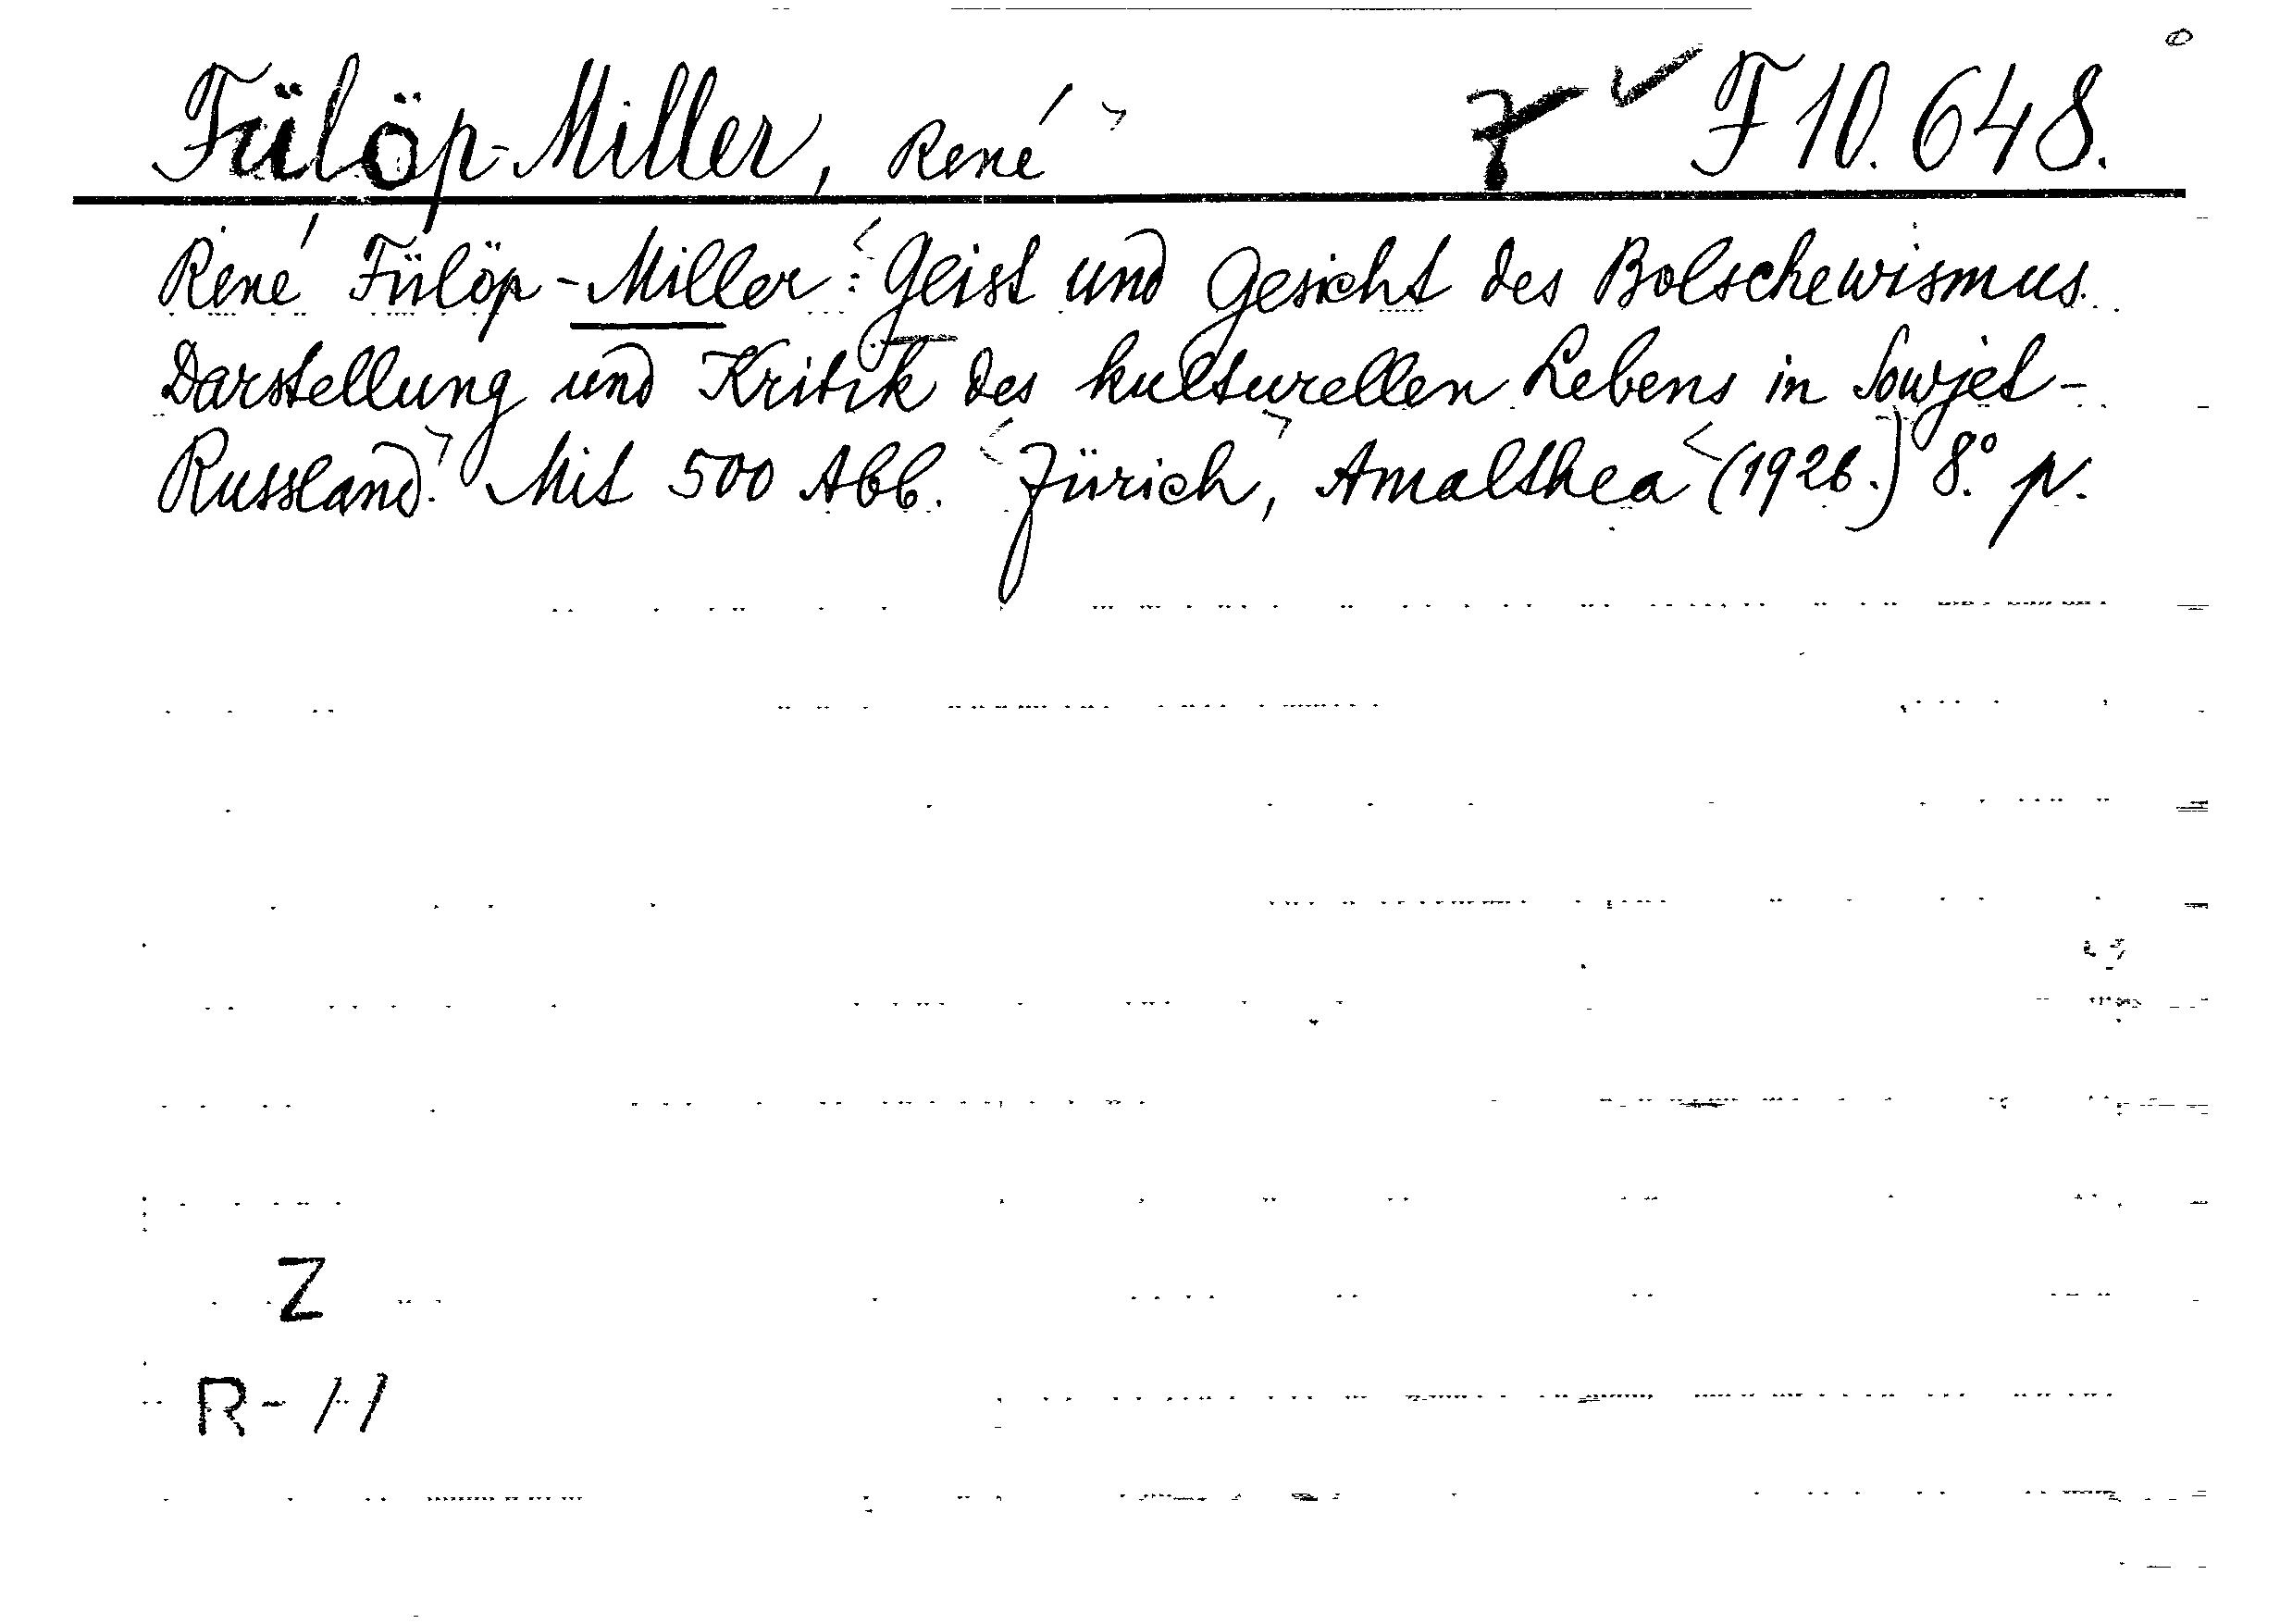 Fülöp-Miller, René F 10.648.
René Fülöp-Miller: Geist und Gesicht des Bolschewismus.
Darstellung und Kritik des kulturellen Lebens in Sowjet-
Russland. Mit 500 Abb. Zürich, Amalthea (1926.) 8° p.
Z
R-H